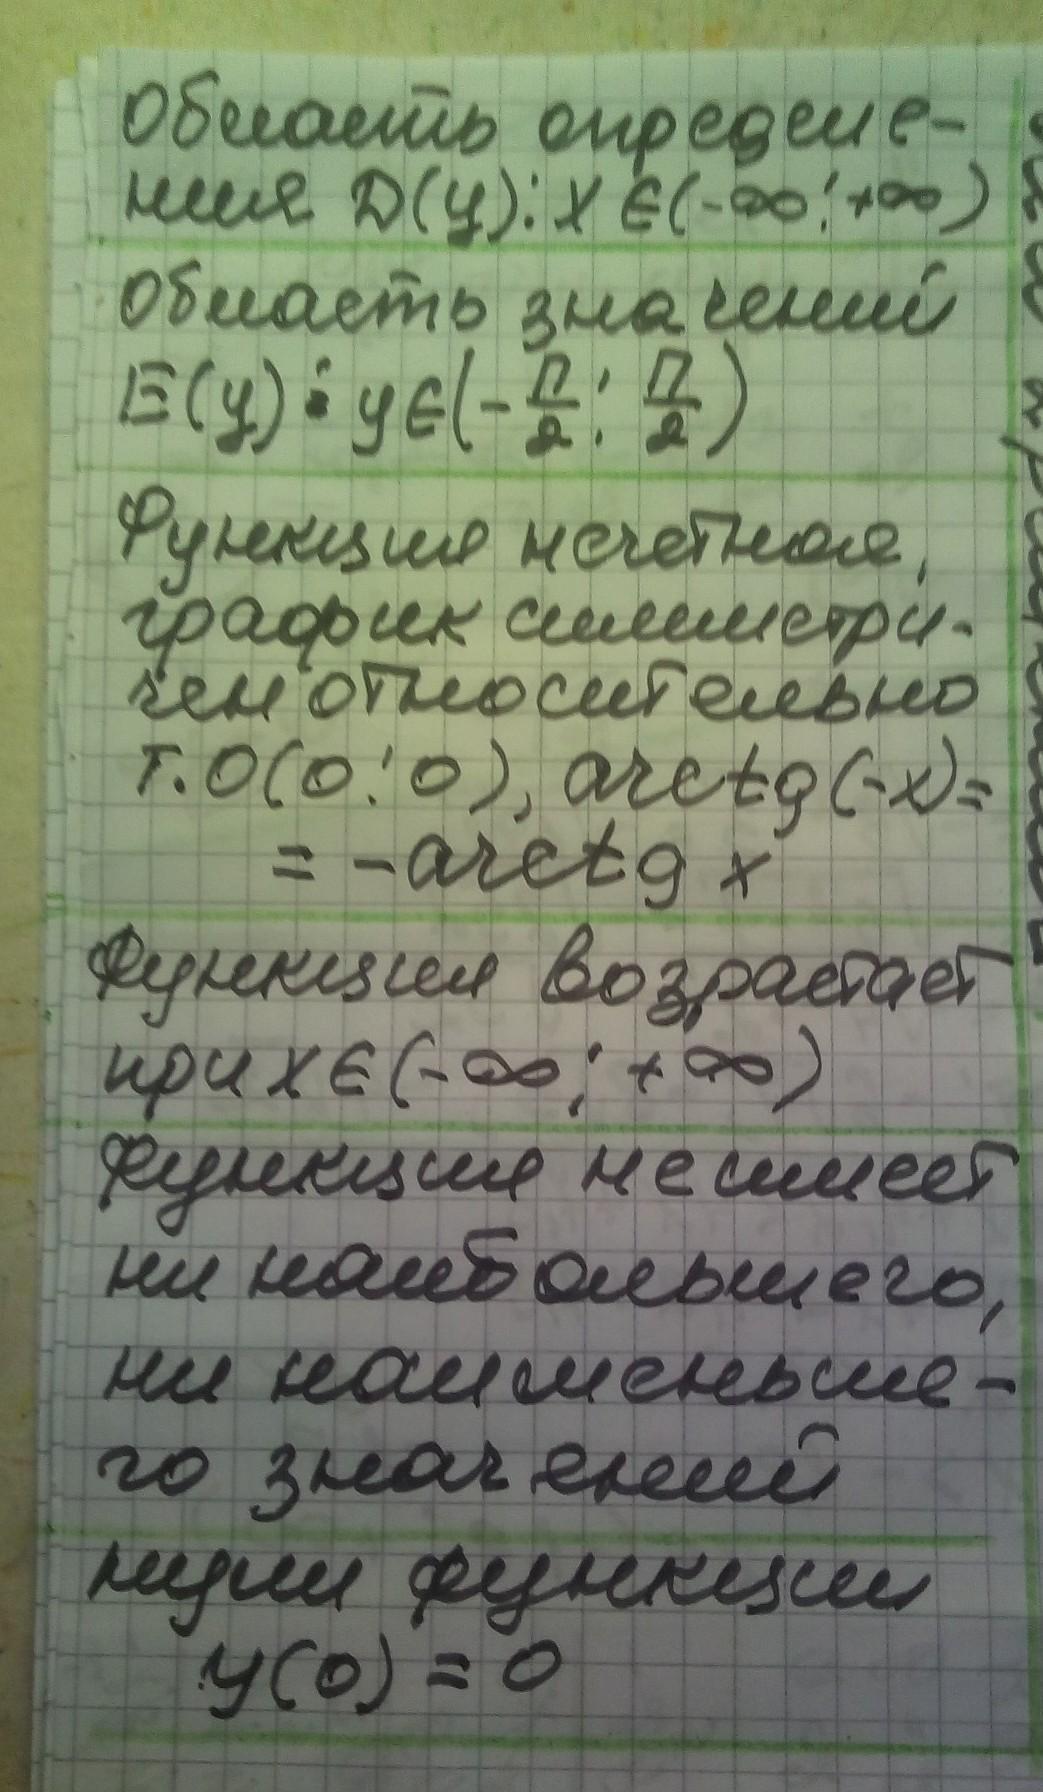 Область определе-
ния D(y): x ∈ (-∞; +∞)
Область значений
E(y): y ∈ (-П/2; П/2)
Функция нечетная,
график симметри-
чен относительно
т. O(0; 0), arctg(-x) =
= -arctg x
Функция возрастает
при x ∈ (-∞; +∞)
Функция не имеет
ни наибольшего,
ни наименьше-
го значений
нули функции
y(0) = 0